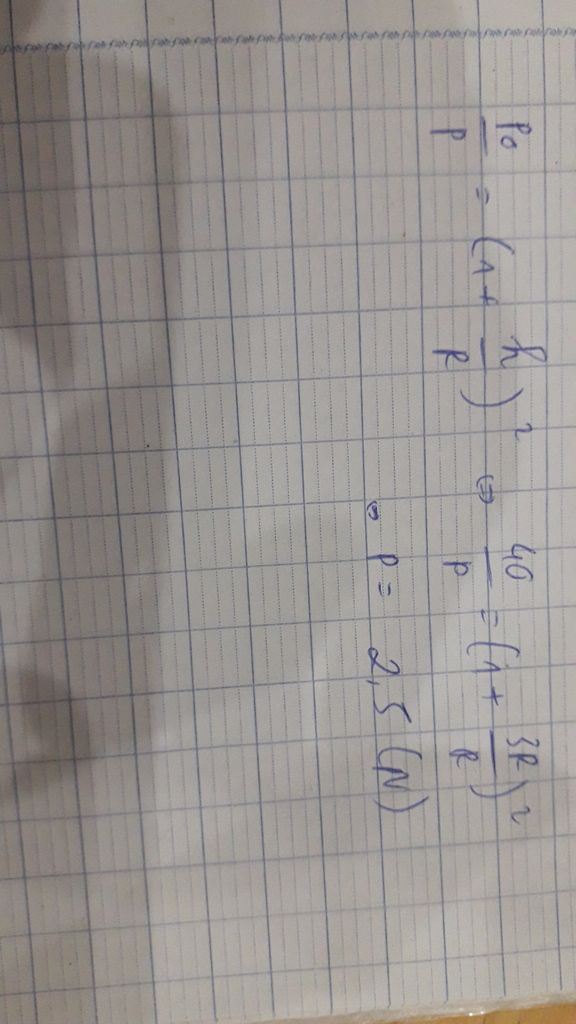 P₀/P = (1 + h/R)² ⇔ 40/P = (1 + 3R/R)²
⇔ P = 2,5 (N)